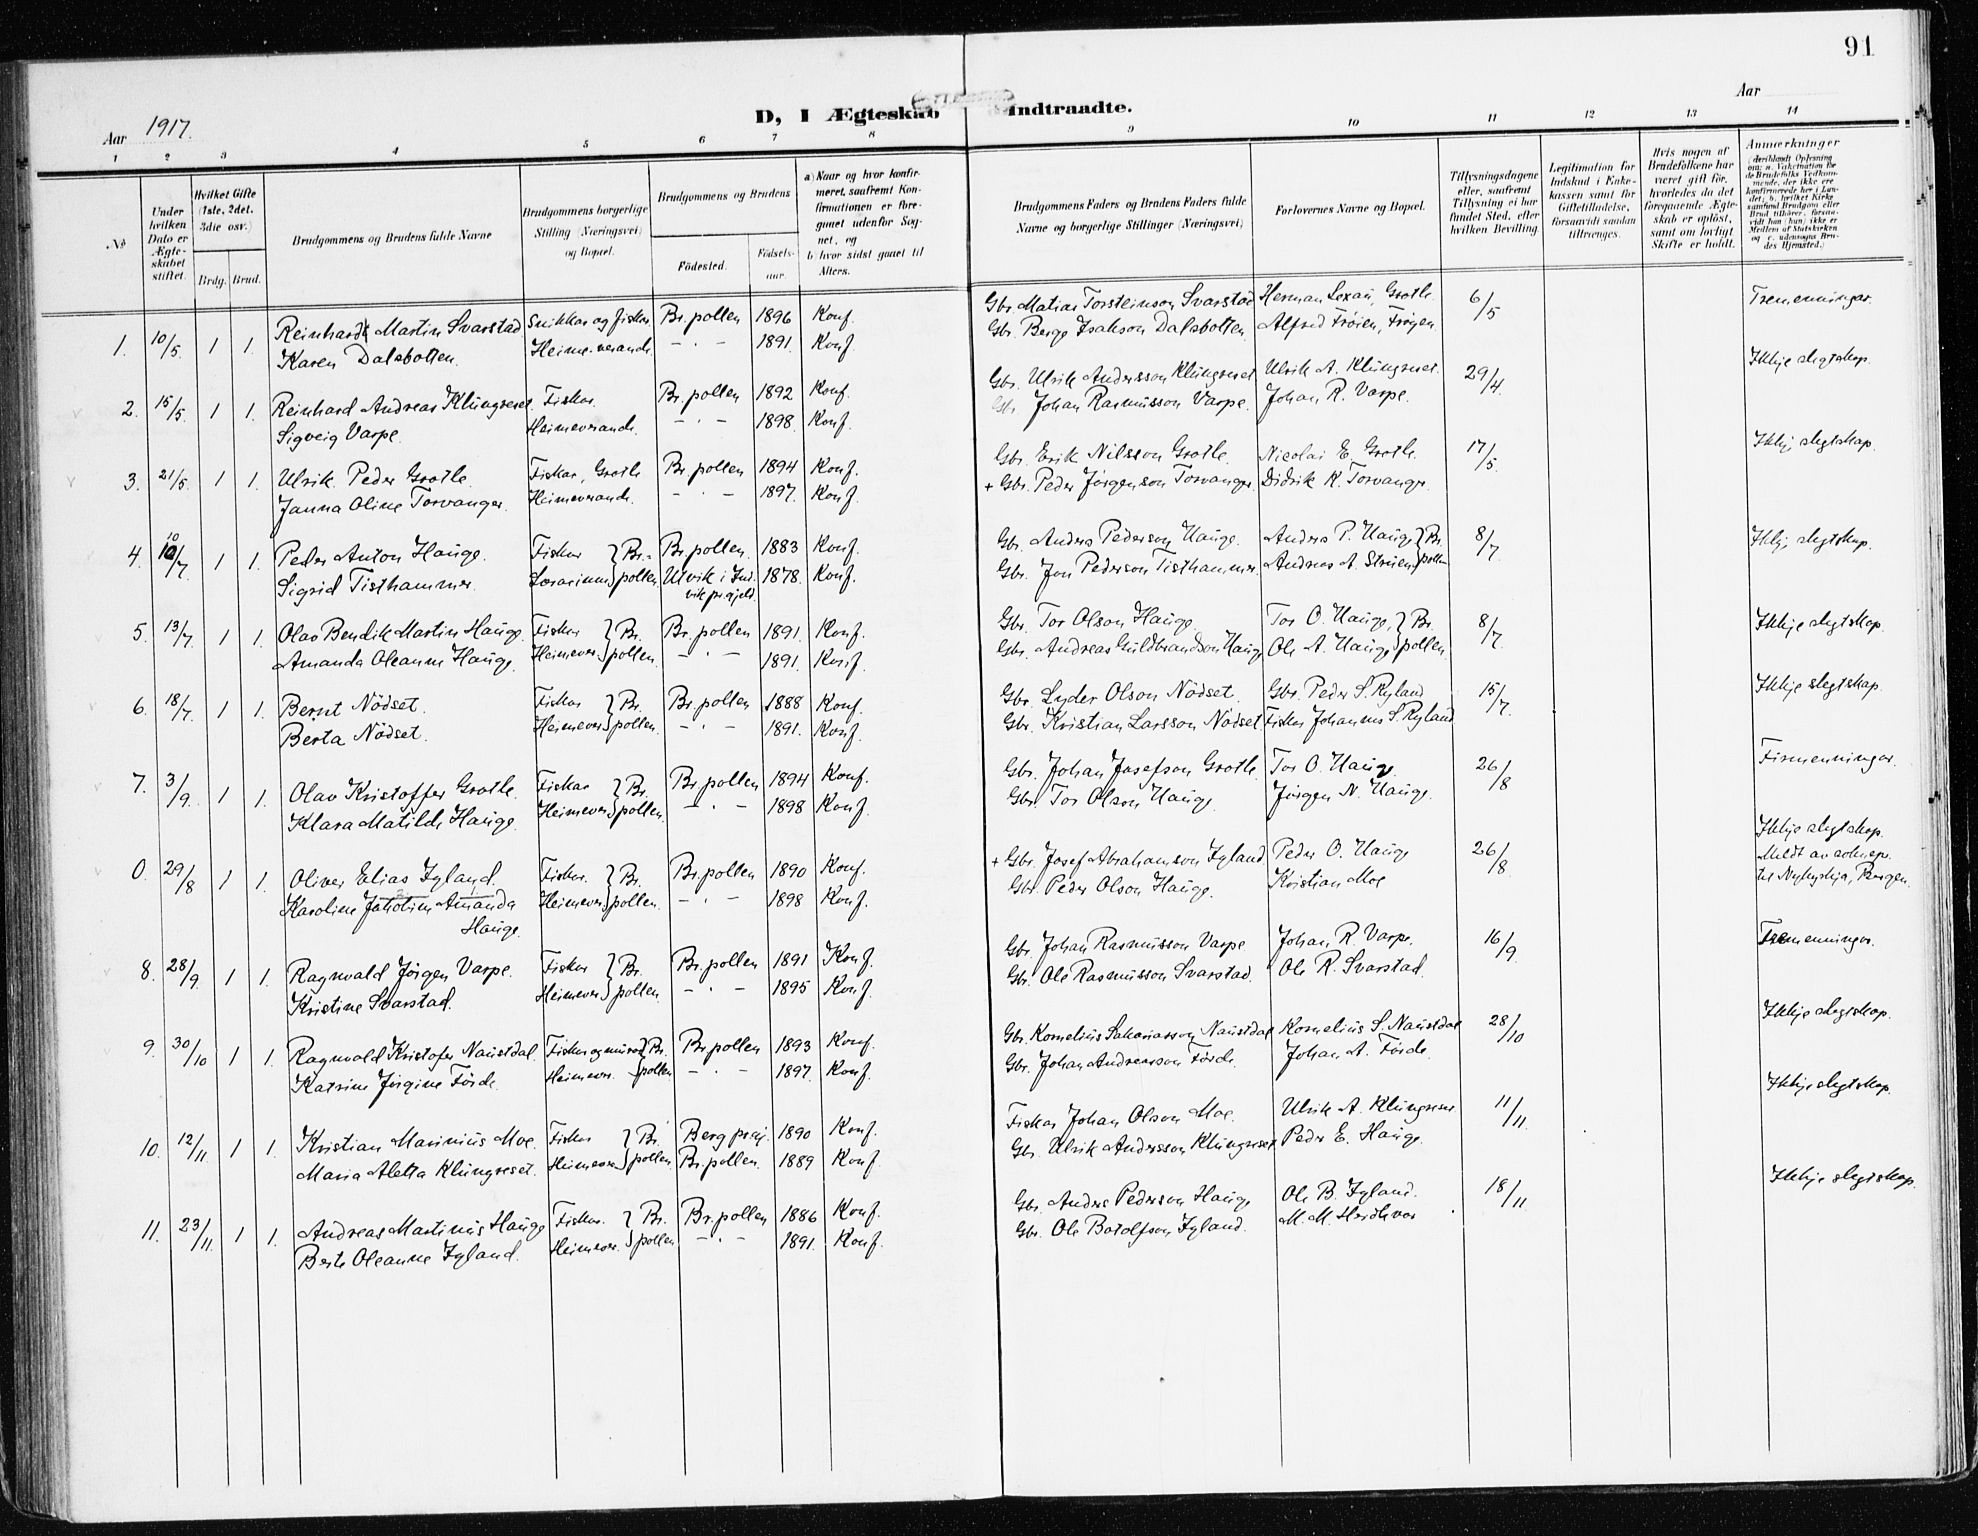 91
D, I Ægteskab Indtraadte.
Aar 1917.
Aar
1 2 3 4 5 6 7 8 9 10 11 12 13 14
No
Under hvilken Dato er Ægteskabet stiftet.
Hvilket Gifte (1ste, 2det, 3die osv.)
Brdg. Brud.
Brudgommens og Brudens fulde Navne
Brudgommens borgerlige Stilling (Næringsvei) og Bopæl.
Brudgommens og Brudens
Födested.
Födselsaar.
a) Naar og hvor konfirmeret, saafremt Konfirmationen er foregaaet udenfor Sognet, og
b) hvor sidst gaaet til Alters.
Brudgommens Faders og Brudens Faders fulde Navne og borgerlige Stillinger (Næringsvei)
Forlovernes Navne og Bopæl.
Tillysningsdagene eller, saafremt Tillysning ei har fundet Sted, efter hvilken Bevilling.
Legitimation for Indskud i Enkekassen samt for Giftetilladelse, forsaavidt saadan tiltrænges.
Hvis nogen af Brudefolkene har været gift för, hvorledes da det foregaaende Ægteskab er oplöst, samt om lovligt Skifte er holdt.
Anmærkninger
(deriblandt Oplysning om: a. Vakcination for de Brudefolks Vedkommende, der ikke ere konfirmerede her i Landet; b. hvilket Kirkesamfund Brudgom eller Brud tilhörer, forsaavidt han (hun) ikke er Medlem af Statskirken og c. udensogns Brudes Hjemsted.)
1. 10/5 1 1. Reinhardt Martin Svarstad Snikkar og fiskar Br.pollen 1896 Konf. Gbr. Matias Torsteinson Svarstad Herman Lexau, Grotle. 6/5 Tremenningar.
Karen Dalsbotten. Heimeverande - " - 1891. Konf. Gbr. Berge Isakson Dalsbotten. Alfred Frøien, Frøyen.
2. 15/5 1 1. Reinhard Andreas Klungreset. Fiskar. Br.pollen 1892 Konf. Gbr. Ulrik Andersson Klungreset Ulrik A. Klungreset. 29/4 Ikkje slegtskap.
Sigveig Varpe. Heimeverande. - " - 1898. Konf. Gbr. Johan Rasmusson Varpe. Johan R. Varpe.
3. 21/5 1 1. Ulrik Peder Grotle. Fiskar, Grotle Br.pollen 1894 Konf. Gbr. Erik Nilsson Grotle. Nicolai E. Grotle. 17/5. Ikkje slegtskap.
Janna Oline Torvanger. Heimeverande. - " - 1897. Konf. + Gbr. Peder Jörgenson Torvanger. Didrik K. Torvanger.
4. 10/7 1 1. Peder Anton Hauge. Fiskar } Br.- Br.pollen. 1883 Konf. Gbr. Anders Pederson Hauge. Anders P. Hauge } Br. 8/7 Ikkje slegtskap.
Sigrid Tisthammer. Lærarinne pollen. Utvik i Indvik pr.gjeld. 1878. Konf. Gbr. Jon Pederson Tisthammer. Andreas A. Strüen pollen
5. 13/7 1 1. Olav Bendik Martin Hauge. Fiskar } Br. Br.pollen 1891. Konf. Gbr. Tor Olson Hauge. Tor O. Hauge, } Br. 8/7. Ikkje slegtskap.
Amanda Oleanne Hauge. Heimever. pollen. - " - 1891. Konf. Gbr. Andreas Guldbrandson Hauge Ole A. Hauge pollen.
6. 18/7 1 1. Bernt Nödset. Fiskar } Br. Br.pollen 1888 Konf. Gbr. Lyder Olson Nödset. Gbr. Peder S. Ryland 15/7. Ikkje slegtskap.
Berta Nödset. Heimever. pollen. - " - 1891. Konf. Gbr. Kristian Larsson Nödset Fiskar Johannes S. Ryland
7. 3/9. 1 1. Olav Kristoffer Grotle. Fiskar } Br. Br.pollen 1894 Konf. Gbr. Johan Josefson Grotle. Tor O. Hauge. 26/8 Firmenningar.
Klara Matilde Hauge. Heimever. pollen. - " - 1898 Konf. Gbr. Tor Olson Hauge. Jörgen N. Hauge.
0. 29/8 1 1. Oliver Elias Fyland. Fiskar. } Br. Br.pollen 1890 Konf. + Gbr. Josef Abrahamson Fyland Peder O. Hauge 26/8 Ikkje slegtskap. Meldt av sokneprest til Nykyrkja, Bergen.
Karoline Amanda Hauge. Heimever. pollen. - " - 1898 Konf. Gbr. Peder Olson Hauge. Kristian Moe
8. 28/9. 1 1. Ragnvald Jörgen Varpe. Fiskar } Br. Br.pollen 1891 Konf. Gbr. Johan Rasmusson Varpe Johan R. Varpe. 16/9. Tremenningar.
Kristine Svarstad. Heimever. pollen. - " - 1895 Konf. Gbr. Ole Rasmusson Svarstad. Ole R. Svarstad
9. 30/10 1 1. Ragnvald Kristofer Naustdal. Fiskar og murar } Br. Br.pollen 1893 Konf. Gbr. Kornelius Sakariasson Naustdal Kornelius S. Naustdal 28/10 Ikkje slegtskap.
Katrine Jörgine Förde. Heimever. pollen - " - 1897. Konf. Gbr. Johan Andreasson Förde. Johan A. Förde.
10. 12/11. 1 1. Kristian Marinius Moe. Fiskar } Br. Berg prgj. 1890 Konf. Fiskar Johan Olson Moe. Ulrik A. Klungreset 11/11. Ikkje slegtskap.
Maria Aletta Klungreset. Heimever. pollen. Br.pollen. 1889 Konf. Gbr. Ulrik Andersson Klungreset Peder E. Hauge.
11. 23/11. 1 1. Andreas Martinus Hauge Fiskar. } Br. Br.pollen 1886 Konf. Gbr. Anders Pederson Hauge Ole B. Fyland. 18/11 Ikkje slegtskap.
Berte Oleanne Fyland. Heimever. pollen - " - 1891. Konf. Gbr. Ole Botolfson Fyland.